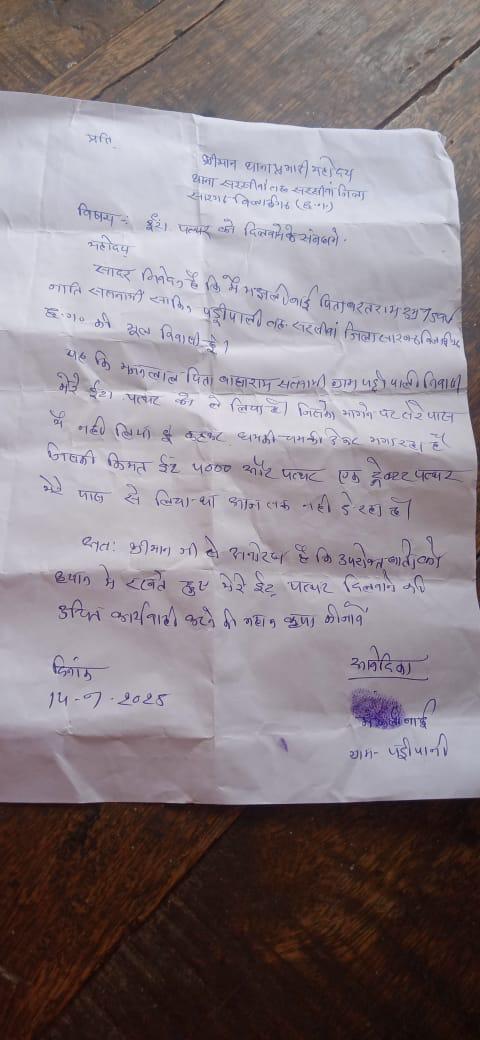 प्रति,
श्रीमान थाना प्रभारी महोदय
थाना सरसीवां तह सरसीवां जिला
सारगढ़ बिलाईगढ़ (छ.ग.)
विषय :- ईटा पत्थर को दिलवाने के संबंध में.
महोदय
सादर निवेदन है कि मैं मझली बाई पिता
जाति सतनामी साकिन पड्रीपाली तह. सरसीवां जिला सारगढ़ बिलाईगढ़
छ.ग. की मूल निवासी हूँ।
यह कि पिता सतनामी ग्राम पड्रीपाली निवासी
मेरे ईटा पत्थर को ले लिया है। जिसको मांगने पर तेरे पास
से नहीं लिया हूं कहकर धमकी-चमकी देकर भगा रहा है
जिसकी किमत ईट ५००० और पत्थर एक ट्रेक्टर पत्थर
मेरे पास से लिया था आज तक नहीं दे रहा है।
अतः श्रीमान जी से अनुरोध है कि उपरोक्त बातों को
ध्यान में रखते हुए मेरे ईट पत्थर दिलवाने की
उचित कार्यवाही करने की महान कृपा कीजिये
दिनांक
आवेदिका
14-7-2025
मझली बाई
ग्राम- पड्रीपाली